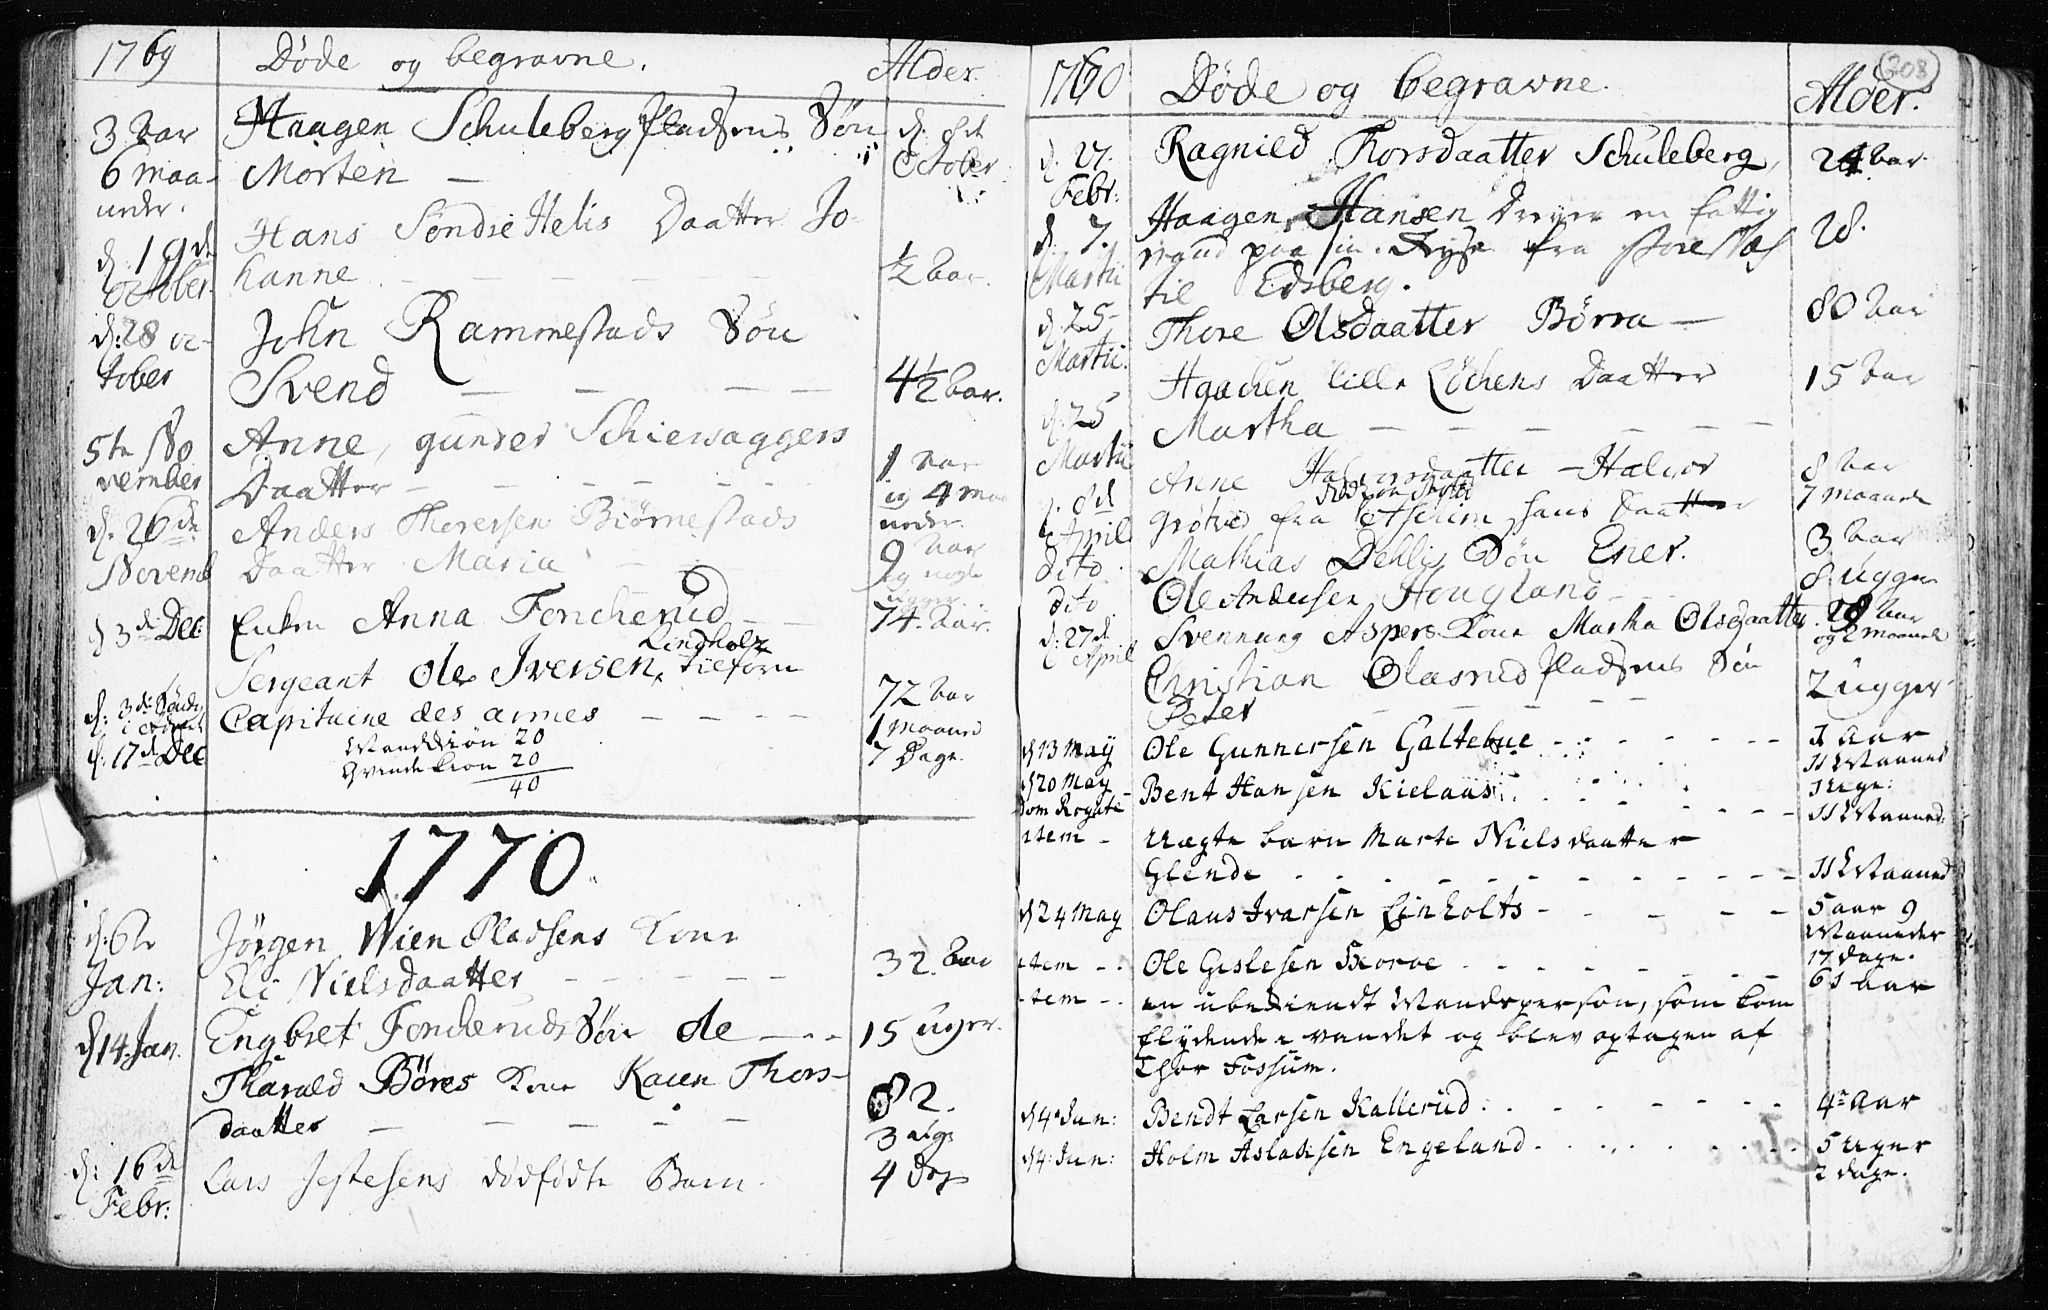 1769 Døde og begravne. Alder.
3 aar Haagen Schuleberg Pladsens Søn d. 8de
6 maa- Morten — October
neder.
d. 19de Hans Søndre Helis Daatter Jo-
October. hanne ½ aar.
d: 28 oc- John Rammestads Søn
tober Svend — — — — 4½ aar.
5te No Anne, gunder Schiersaggers 1 aar
vember Daatter — — — — og 4 maa
d. 26de Anders Thoresen Biørnestads neder.
Novemb Daatter Maria 9 aar og nogle uger
d 3de Dec: Enken Anna Foncherud — — 74. aar.
Lindholt
Sergeant Ole Iversen, tilforn
d: 3de Sønd. i Advent Capitaine des armes — — — — 72 aar
d. 17de Dec 1 maaned
7 Dage.
Mandkiøn 20
Qvindekiøn 20
40
1770.
d. 6te Jørgen Wien Pladsens Kone
Jan: Eli Nielsdaatter — — — — 32. aar
d 14. Jan. Engbret Foncheruds Søn Ole — — - 15 uger.
Tharald Børes Kone Karen Thors-
daatter — — — — — 82.
3 uger
d: 16de Lars Jestesens dødfødte Barn. 4 dage
Febr:
1760 Døde og begravne. Alder.
208
d. 27. Ragnild Thorsdaatter Schuleberg, 24 aar.
Febr:
d. 7. Haagen Hansen Dreyer en fattig 28.
Martii mand paa sin Reyse fra
til Edsberg.
d. 25- Thore Olsdaatter Børra — 80 aar
Martii.
d. 25 Haachen lille Löchens Daatter 15 aar
Martii Martha — — — — — —
d. 8d Anne Halvorsdaatter — Halvor 8 aar
April Grøtved fra Aschim, hans Daatter 7 maaneder
dito Mathias Dehlis Søn Ener. 3. aar
dito Ole Andersen Hougland — — 8. ugger
d: 27d Svennung Aspers Kone Martha Olsdaatter 28 aar
April og 2 maaneder
Christian Olasrud Pladsens Søn
Peter — — — — 2 ugger
d 13 May Ole Gunnersen Galtebue - - - - - - - 1 Aar
11 Maaned
d 20 May Bent Hansen Kielaas . . . . . 1 Uge:
Dom Rogate 11 Maaned:
item - Uægte barn Marte Nielsdaatter
Glende - - - - - - - - - 11 Maaned
d 24 May Olaus Ivarsen Linholts - - - - - 5 aar 9
Maaneder
item - . Ole Gislesen Skorve - - - - - - - 17 dage.
item - . en ubekiendt Mandsperson, som kom 61 Aar
flydende i vandet og blev optagen af
Thor Fossum.
d 4 Jun: Bendt Larsen Kallerud . - - - - - - 4 Aar
d 4: Jun: Holm Aslaksen Engeland . . . . . . . 5 Uger
2 dage.